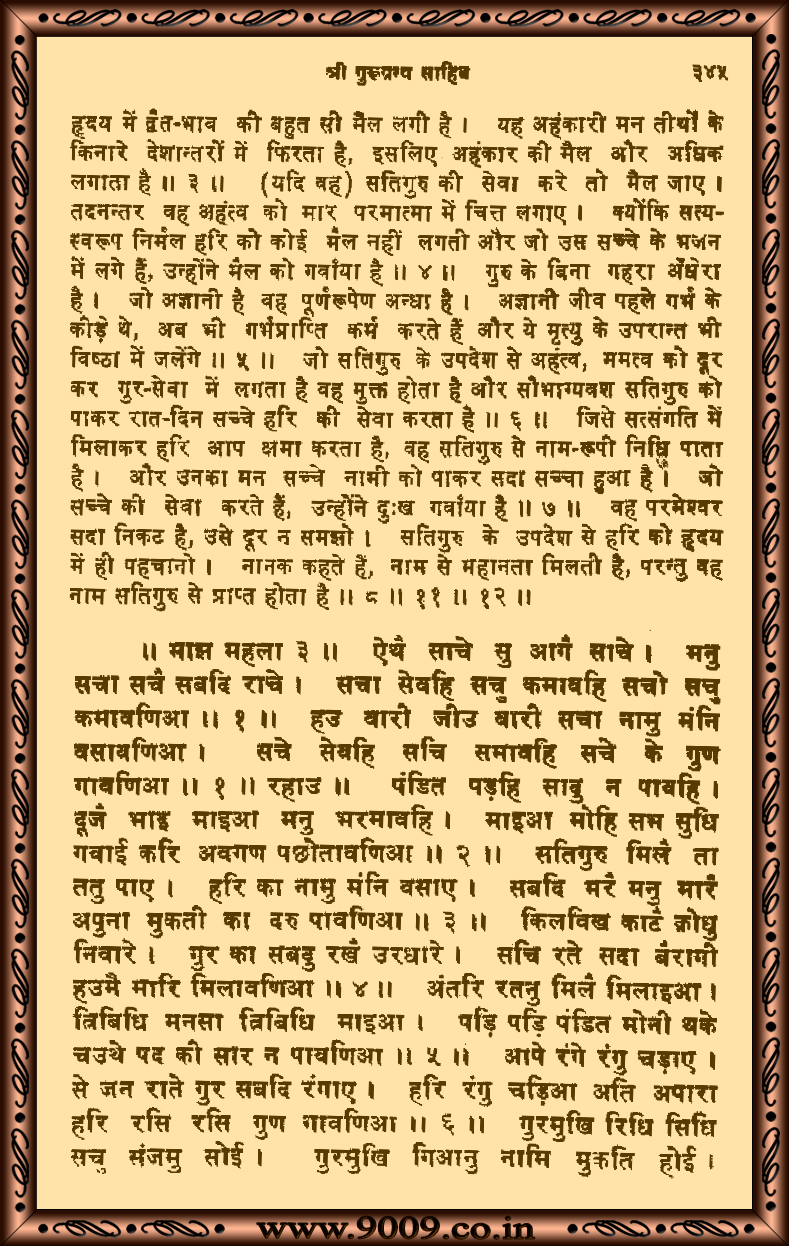 श्री गुरूग्रन्थ साहिब ३४५
हृदय में द्वैत-भाव की बहुत सी मैल लगी है । यह अहंकारी मन तीर्थों के
किनारे देशान्तरों में फिरता है, इसलिए अहंकार की मैल और अधिक
लगाता है ॥ ३ ॥ (यदि वह) सतिगुरु की सेवा करे तो मैल जाए ।
तदनन्तर वह अहंत्व को मार परमात्मा में चित्त लगाए । क्योंकि सत्य-
स्वरूप निर्मल हरि को कोई मैल नहीं लगती और जो उस सच्चे के भजन
में लगे हैं, उन्होंने मैल को गवाँया है ॥ ४ ॥ गुरु के बिना गहरा अँधेरा
है । जो अज्ञानी है वह पूर्णरूपेण अन्धा है । अज्ञानी जीव पहले गर्भ के
कीड़े थे, अब भी गर्भप्राप्ति कर्म करते हैं और ये मृत्यु के उपरान्त भी
विष्ठा में जलेंगे ॥ ५ ॥ जो सतिगुरु के उपदेश से अहंत्व, ममत्व को दूर
कर गुर-सेवा में लगता है वह मुक्त होता है और सौभाग्यवश सतिगुरु को
पाकर रात-दिन सच्चे हरि की सेवा करता है ॥ ६ ॥ जिसे सत्संगति में
मिलाकर हरि आप क्षमा करता है, वह सतिगुरु से नाम-रूपी निधि पाता
है । और उनका मन सच्चे नामी को पाकर सदा सच्चा हुआ है । जो
सच्चे की सेवा करते हैं, उन्होंने दुःख गवाँया है ॥ ७ ॥ वह परमेश्वर
सदा निकट है, उसे दूर न समझो । सतिगुरु के उपदेश से हरि को हृदय
में ही पहचानो । नानक कहते हैं, नाम से महानता मिलती है, परन्तु वह
नाम सतिगुरु से प्राप्त होता है ॥ ८ ॥ ११ ॥ १२ ॥
॥ माझ महला ३ ॥ ऐथै साचे सु आगै साचे । मनु
सचा सचै सबदि राचे । सचा सेवहि सचु कमावहि सचो सचु
कमावणिआ ॥ १ ॥ हउ वारी जीउ वारी सचा नामु मंनि
वसावणिआ । सचे सेवहि सचि समावहि सचे के गुण
गावणिआ ॥ १ ॥ रहाउ ॥ पंडित पड़हि सादु न पावहि ।
दूजै भाइ माइआ मनु भरमावहि । माइआ मोहि सभ सुधि
गवाई करि अवगण पछोतावणिआ ॥ २ ॥ सतिगुरु मिलै ता
ततु पाए । हरि का नामु मंनि वसाए । सबदि मरै मनु मारै
अपुना मुकती का दरु पावणिआ ॥ ३ ॥ किलविख काटै क्रोधु
निवारे । गुर का सबदु रखै उरधारे । सचि रते सदा बैरागी
हउमै मारि मिलावणिआ ॥ ४ ॥ अंतरि रतनु मिलै मिलाइआ ।
त्रिबिधि मनसा त्रिबिधि माइआ । पड़ि पड़ि पंडित मोनी थके
चउथे पद की सार न पावणिआ ॥ ५ ॥ आपे रंगे रंगु चड़ाए ।
से जन राते गुर सबदि रंगाए । हरि रंगु चड़िआ अति अपारा
हरि रसि रसि गुण गावणिआ ॥ ६ ॥ गुरमुखि रिधि सिधि
सचु संजमु सोई । गुरमुखि गिआनु नामि मुकति होई ।
www.9009.co.in